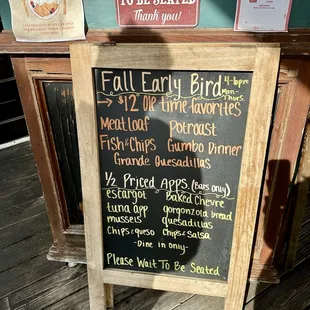 TO BE SEATED
Thank you!
Fall Early Bird 4-6pm
Mon-Thurs.
→ $12 Ole time favorites
Meatloaf Potroast
Fish & Chips Gumbo Dinner
Grande Quesadillas
1/2 Priced Apps. (Bars only)
escargot Baked Chevre
tuna app gorgonzola bread
mussels quesadillas
Chips & queso Chips & Salsa
-Dine in only-
Please Wait To Be Seated